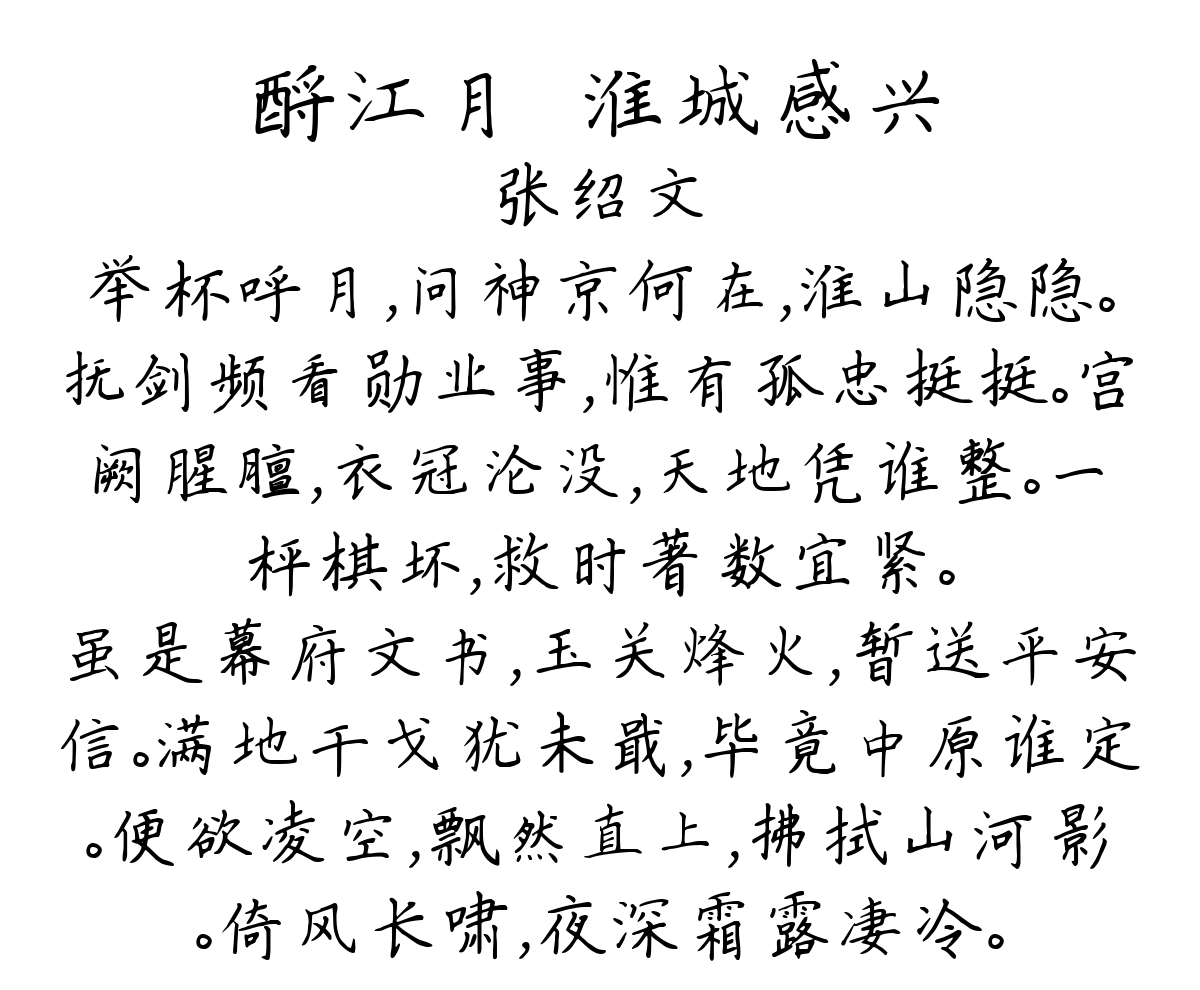 酹江月 淮城感兴
张绍文
举杯呼月,问神京何在,淮山隐隐。
抚剑频看勋业事,惟有孤忠挺挺。宫
阙腥膻,衣冠沦没,天地凭谁整。一
枰棋坏,救时著数宜紧。
虽是幕府文书,玉关烽火,暂送平安
信。满地干戈犹未戢,毕竟中原谁定
。便欲凌空,飘然直上,拂拭山河影
。倚风长啸,夜深霜露凄冷。